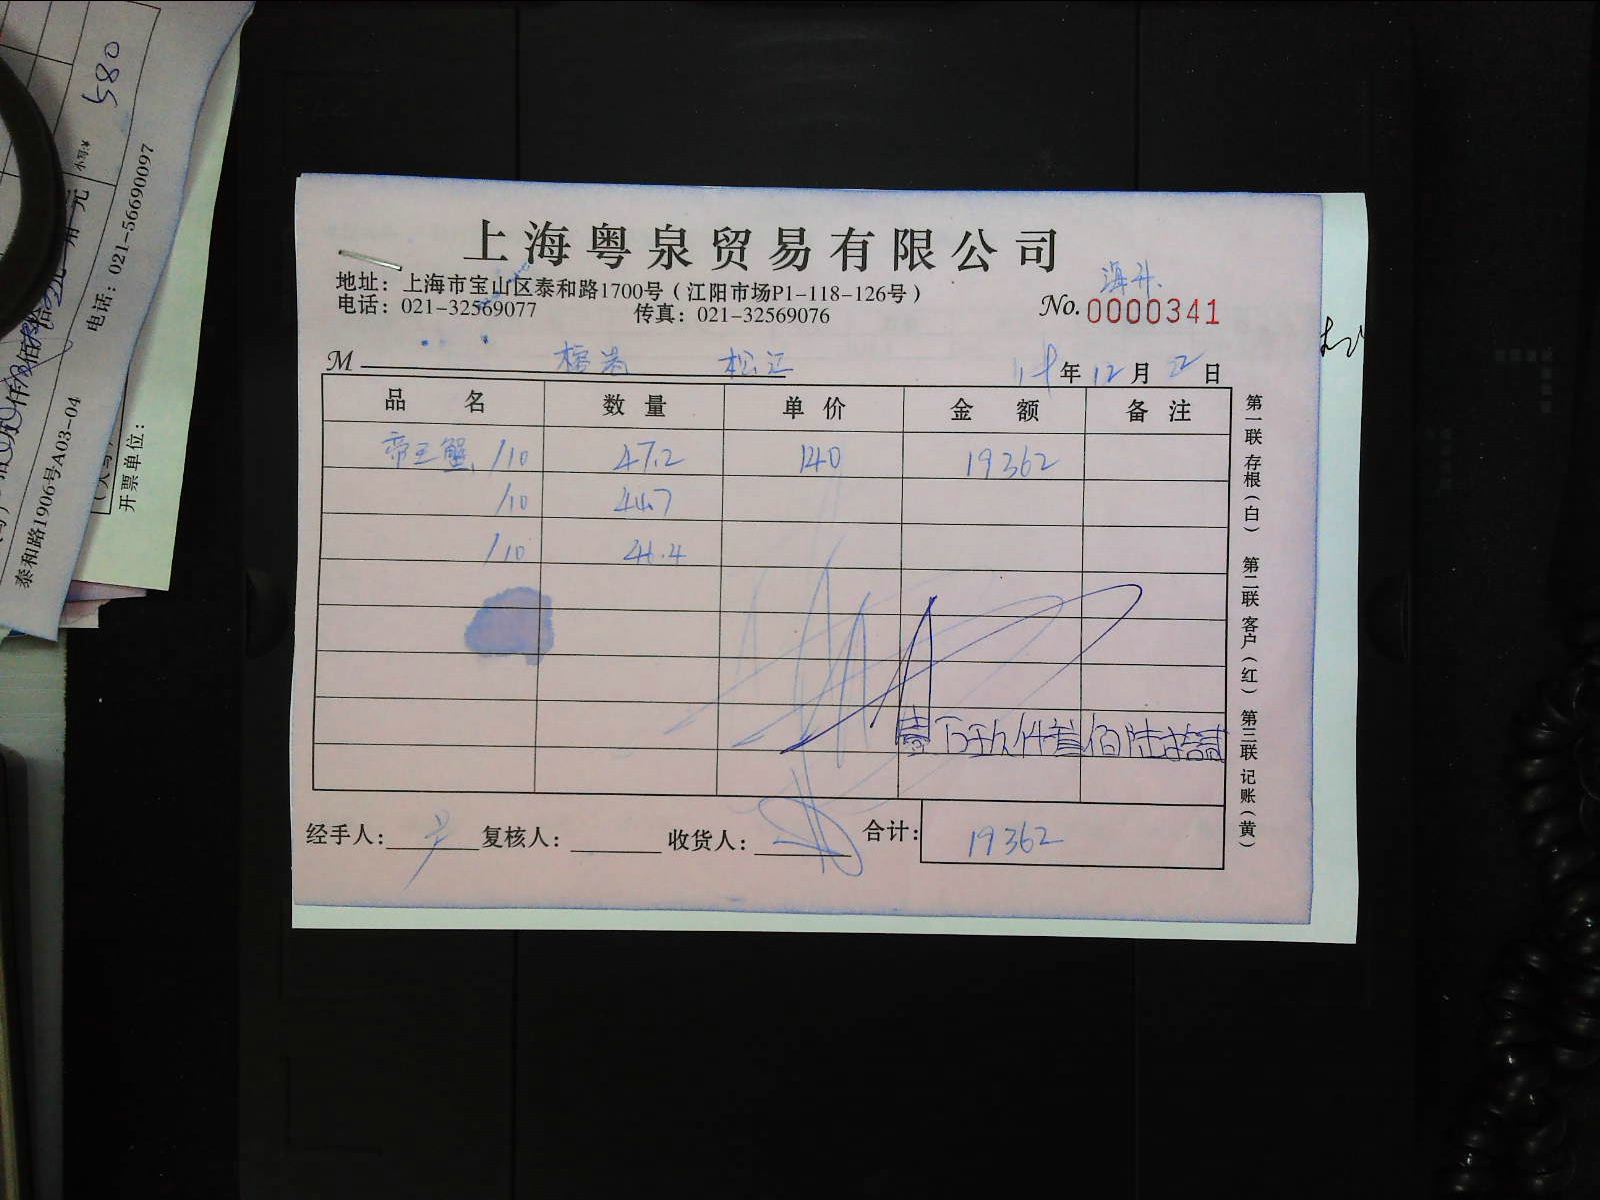 上海粤泉贸易有限公司
地址：上海市宝山区泰和路1700号（江阳市场P1-118-126号）
电话：021-32569077 传真：021-32569076
No. 0000341
M 松江 14年12月2日
品名 数量 单价 金额 备注
帝王蟹 /10 47.2 140 19362
/10 44.7
/10 46.4
壹万玖仟叁佰陆拾贰
经手人： 复核人： 收货人： 合计：19362
第一联 存根（白） 第二联 客户（红） 第三联 记账（黄）
580
电话：021-56690097
泰和路1906号A03-04
开票单位：